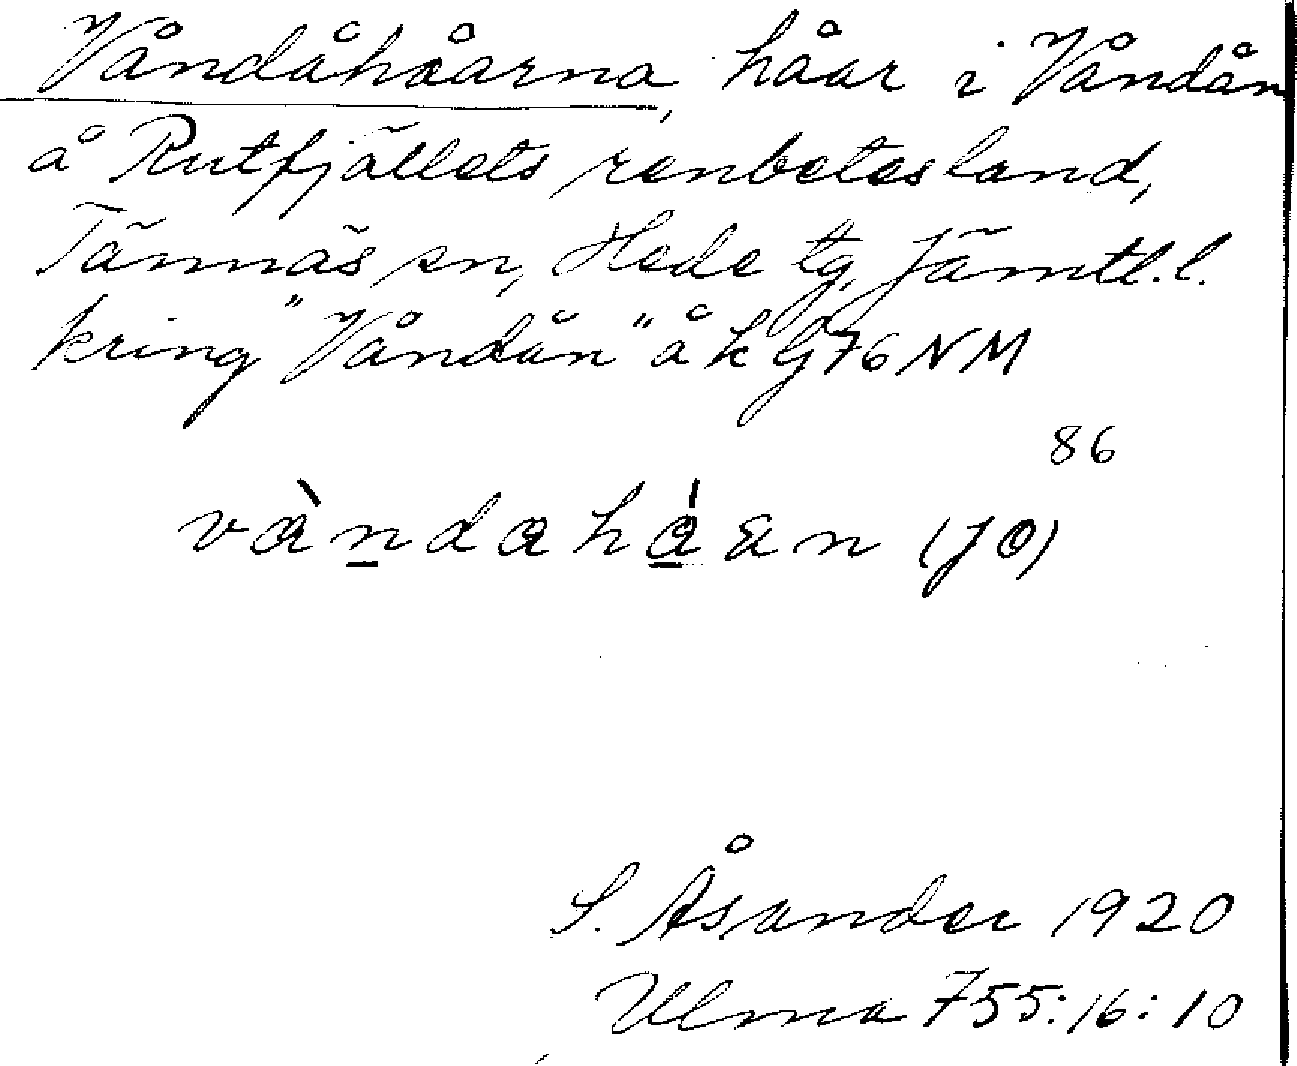 Våndåhåarna, håar i Våndån
å Rutfjällets renbetesland,
Tännäs sn, Hede tg, Jämtl. l.
kring "Våndån" å k G 76 NM
86
våndahåan (JO)
S. Åsander 1920
Ulma 755:16:10